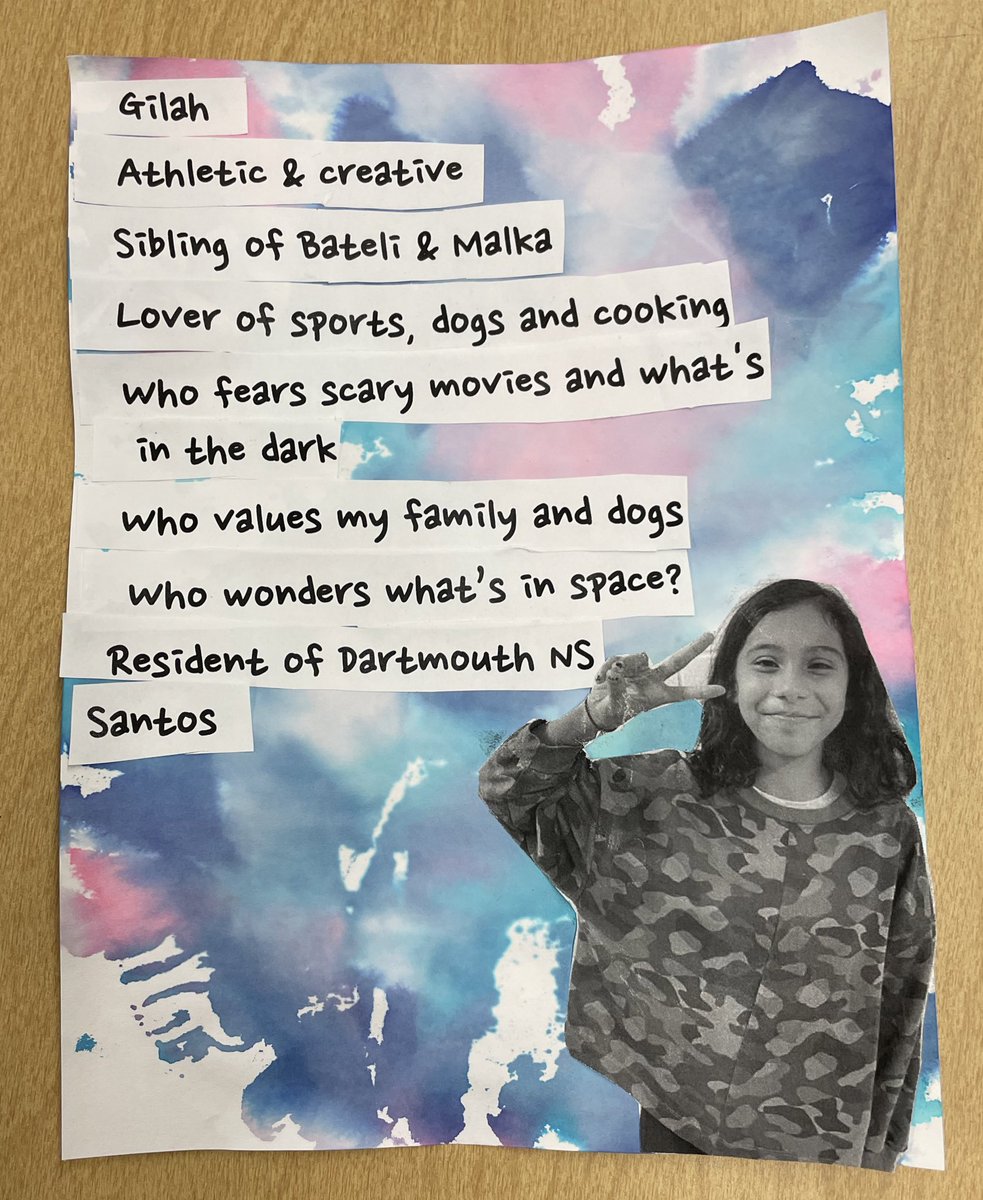 Gilah
Athletic & creative
Sibling of Bateli & Malka
Lover of sports, dogs and cooking
Who fears scary movies and what's
in the dark
Who values my family and dogs
Who wonders what's in space?
Resident of Dartmouth NS
Santos